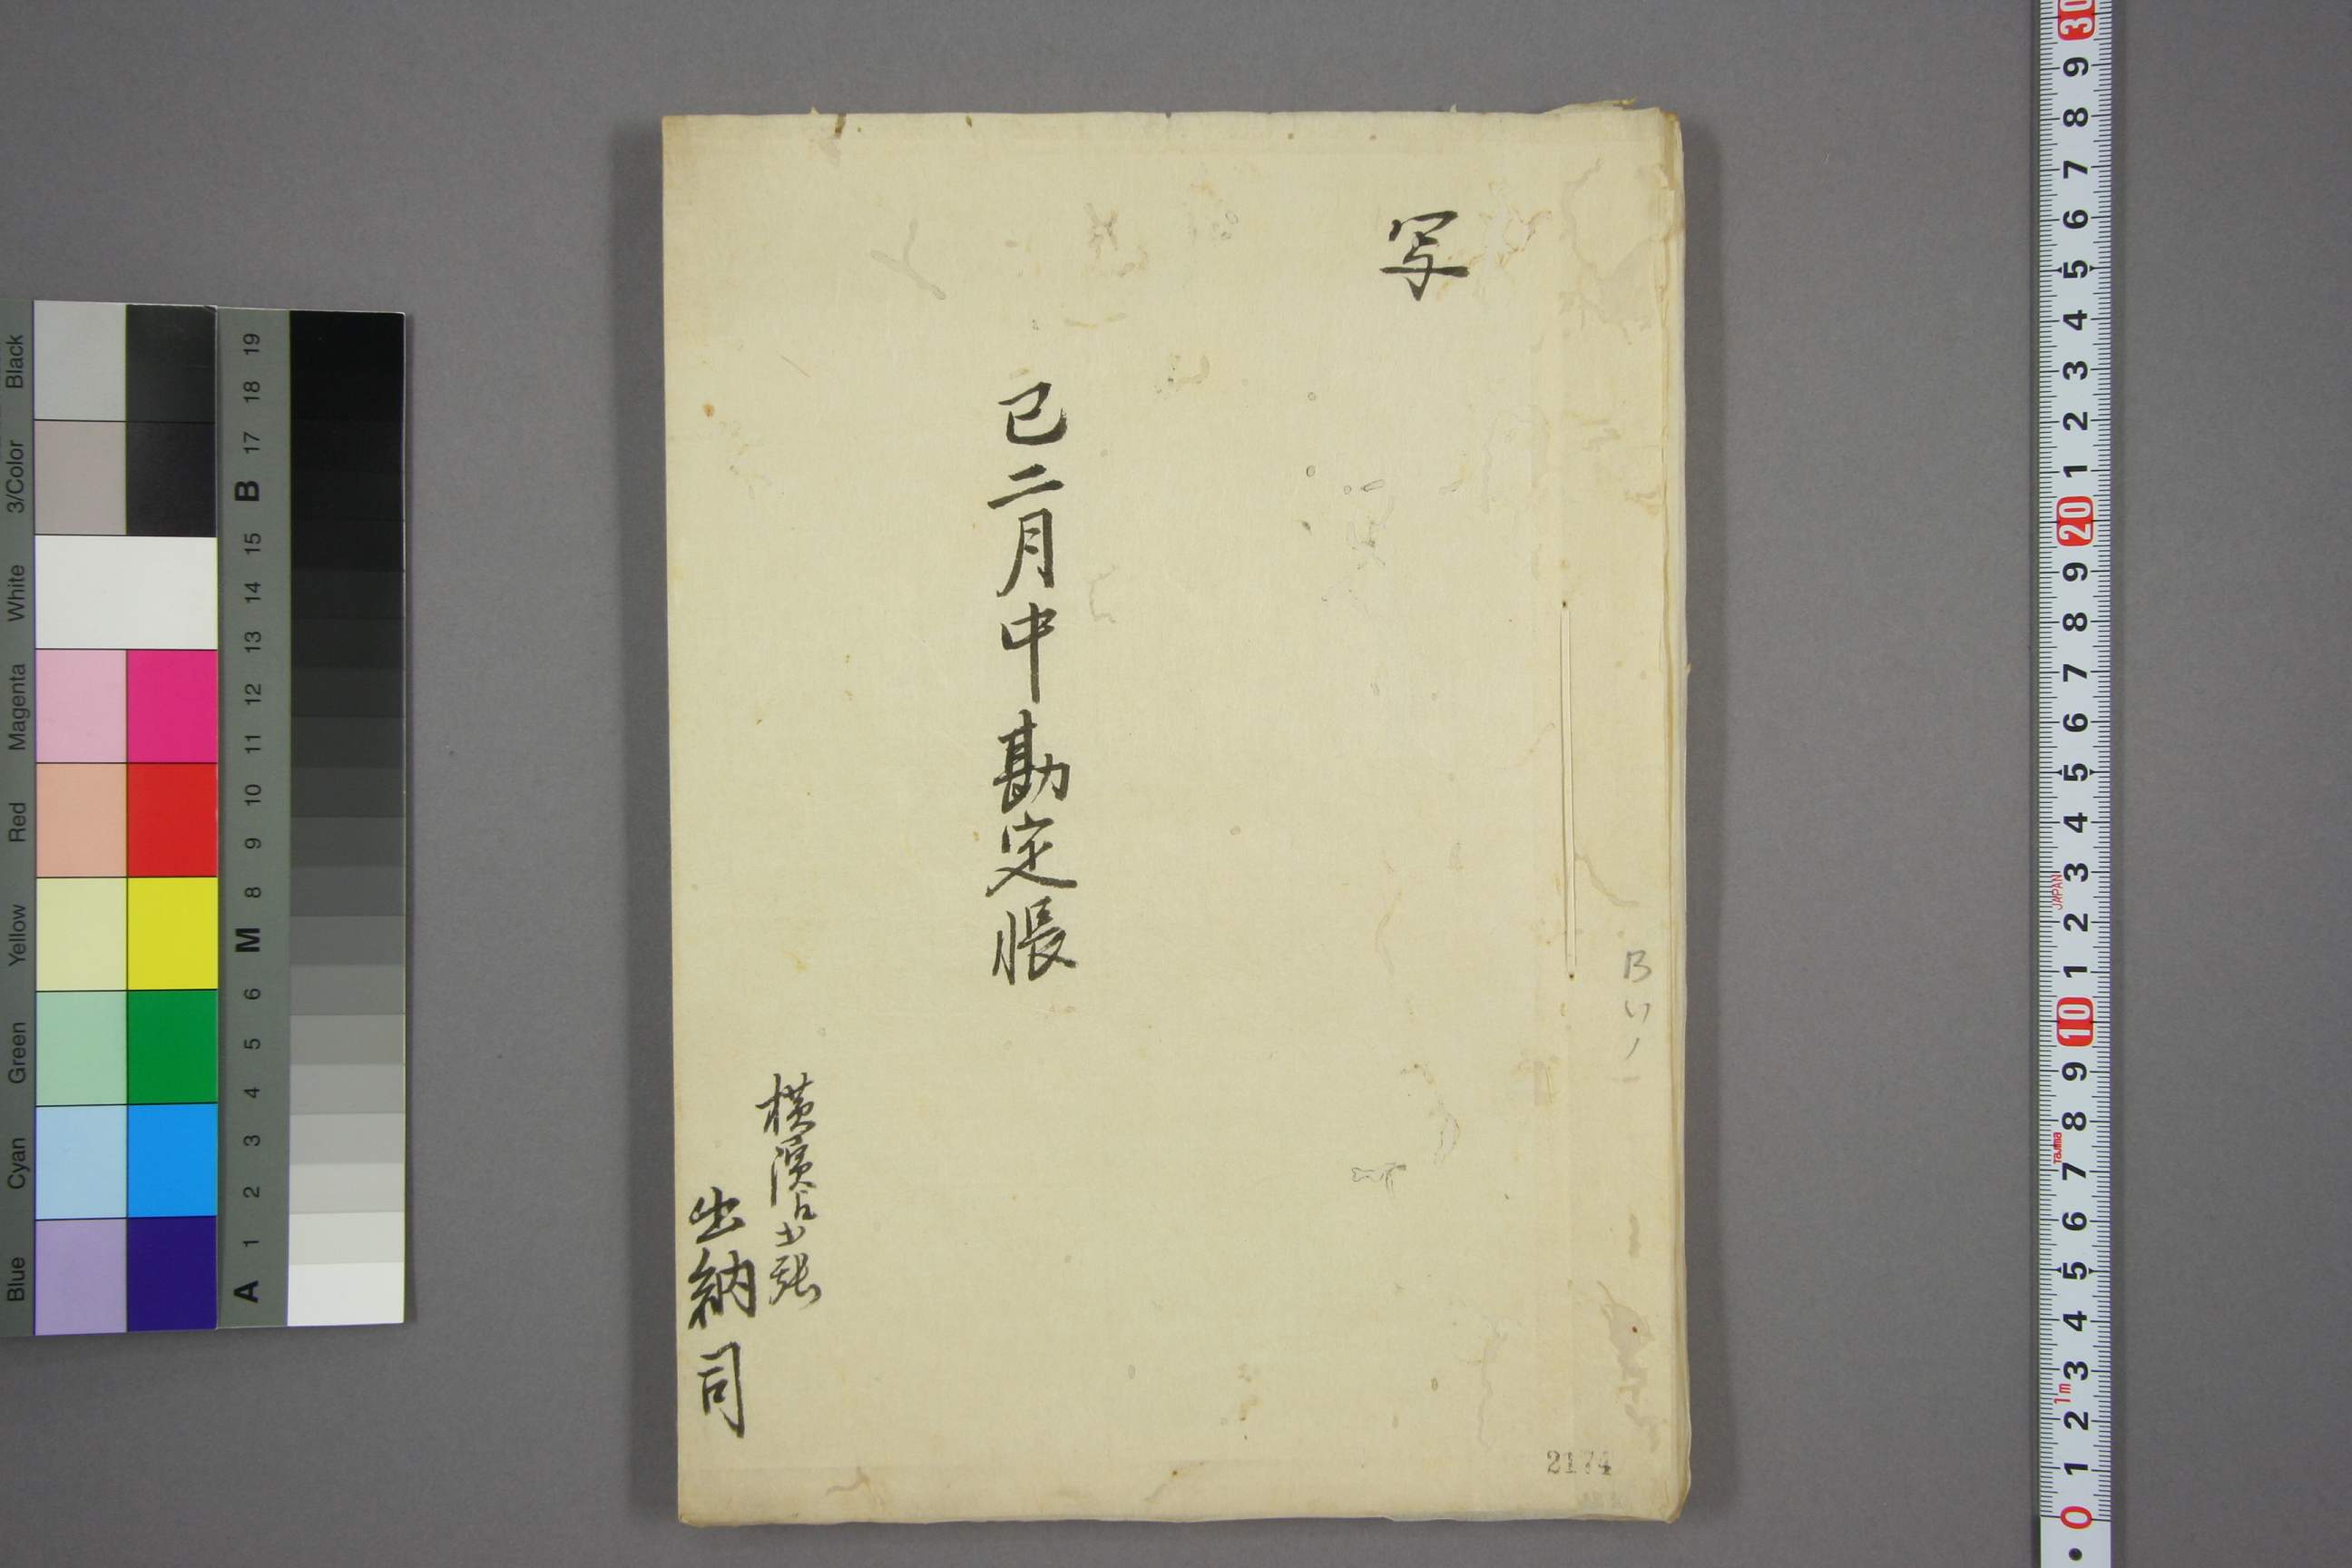 写
巳二月中勘定帳
横濱占出張
出納司
B い 1
2174
Black
3/Color
White
Magenta
Red
Yellow
Green
Cyan
Blue
19
18
17
B
15
14
13
12
11
10
9
8
M
6
5
4
3
2
1
A
30
9
8
7
6
5
4
3
2
1
20
9
8
7
6
5
4
3
JAPAN
2
1
10
9
8
Tajima
7
6
5
4
3
1m
2
1
0